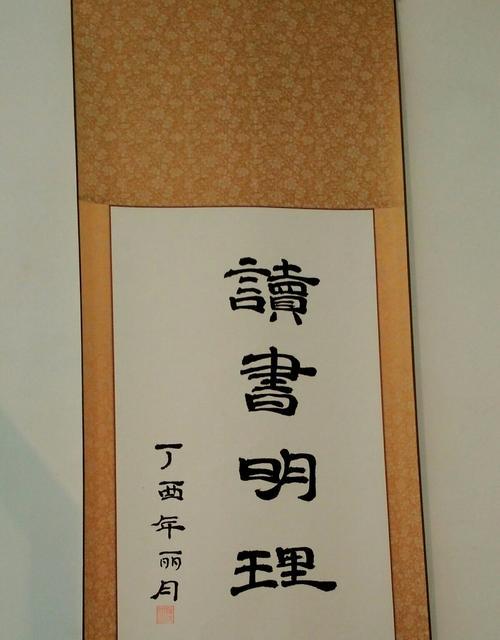 讀書明理
丁酉年丽月